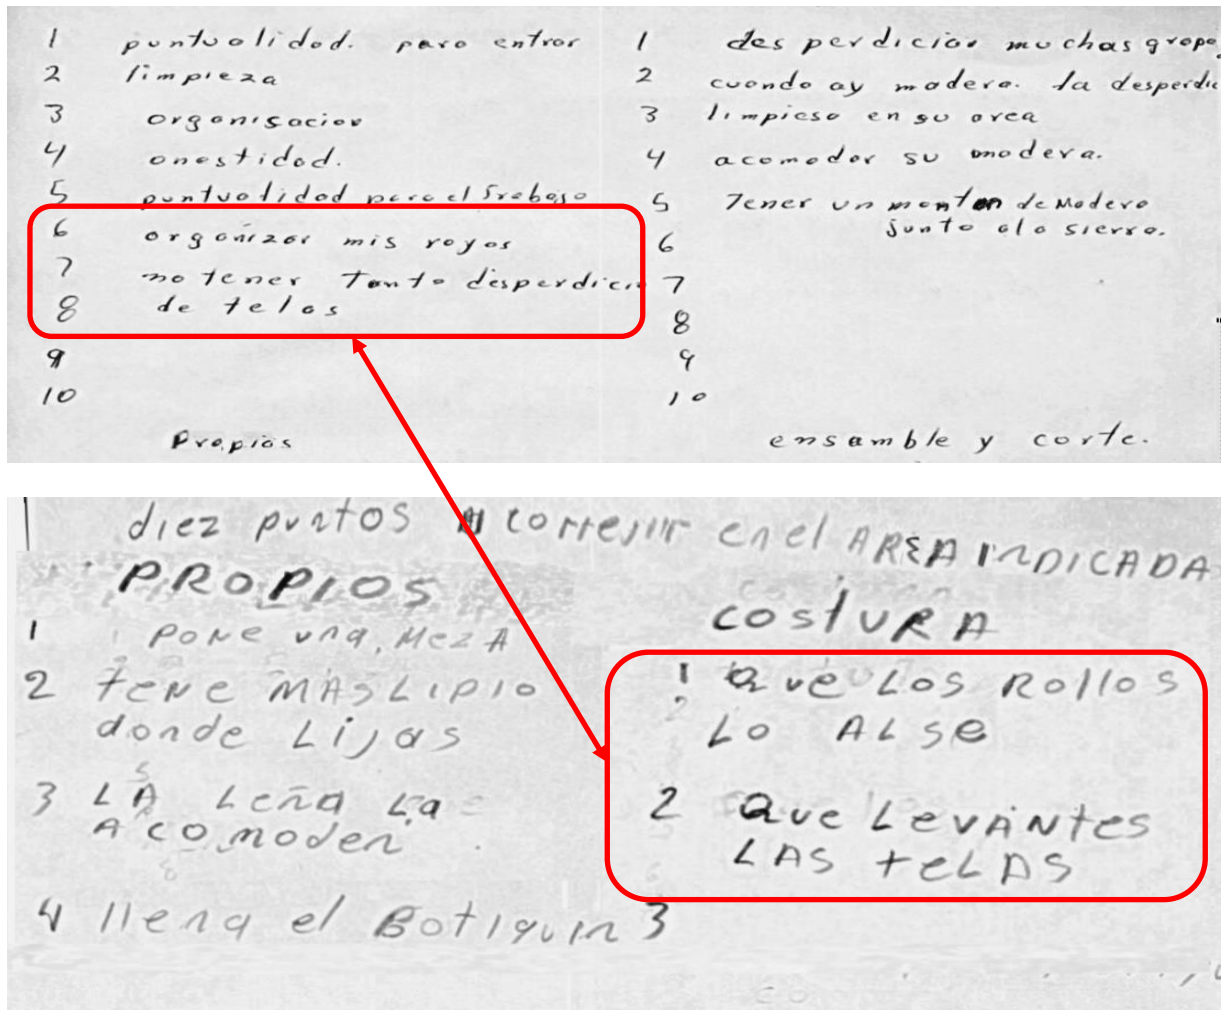 1 puntualidad. para entrar
2 limpieza
3 organisacion
4 onestidad.
5 puntualidad para el trabajo
6 organizar mis royos
7 no tener tanto desperdicio
8 de telas
9
10
Propios
1 desperdiciar muchas grapa
2 cuando ay madera. la desperdic
3 limpiesa en su area
4 acomodar su madera.
5 Tener un monton de Madera
6 junto ala sierra.
7
8
9
10
ensamble y corte.
diez puntos A correjir en el AREA INDICADA
PROPIOS
1 PONE una, MezA
2 tENE MAS LIPIO
donde Lijas
3 LA Leña La
ACOMODEN
4 llena el BOTIQUIN
COSTURA
1 QUE LOS ROllOS
LO ALSE
2 QUE LEVANTES
LAS TELAS
3